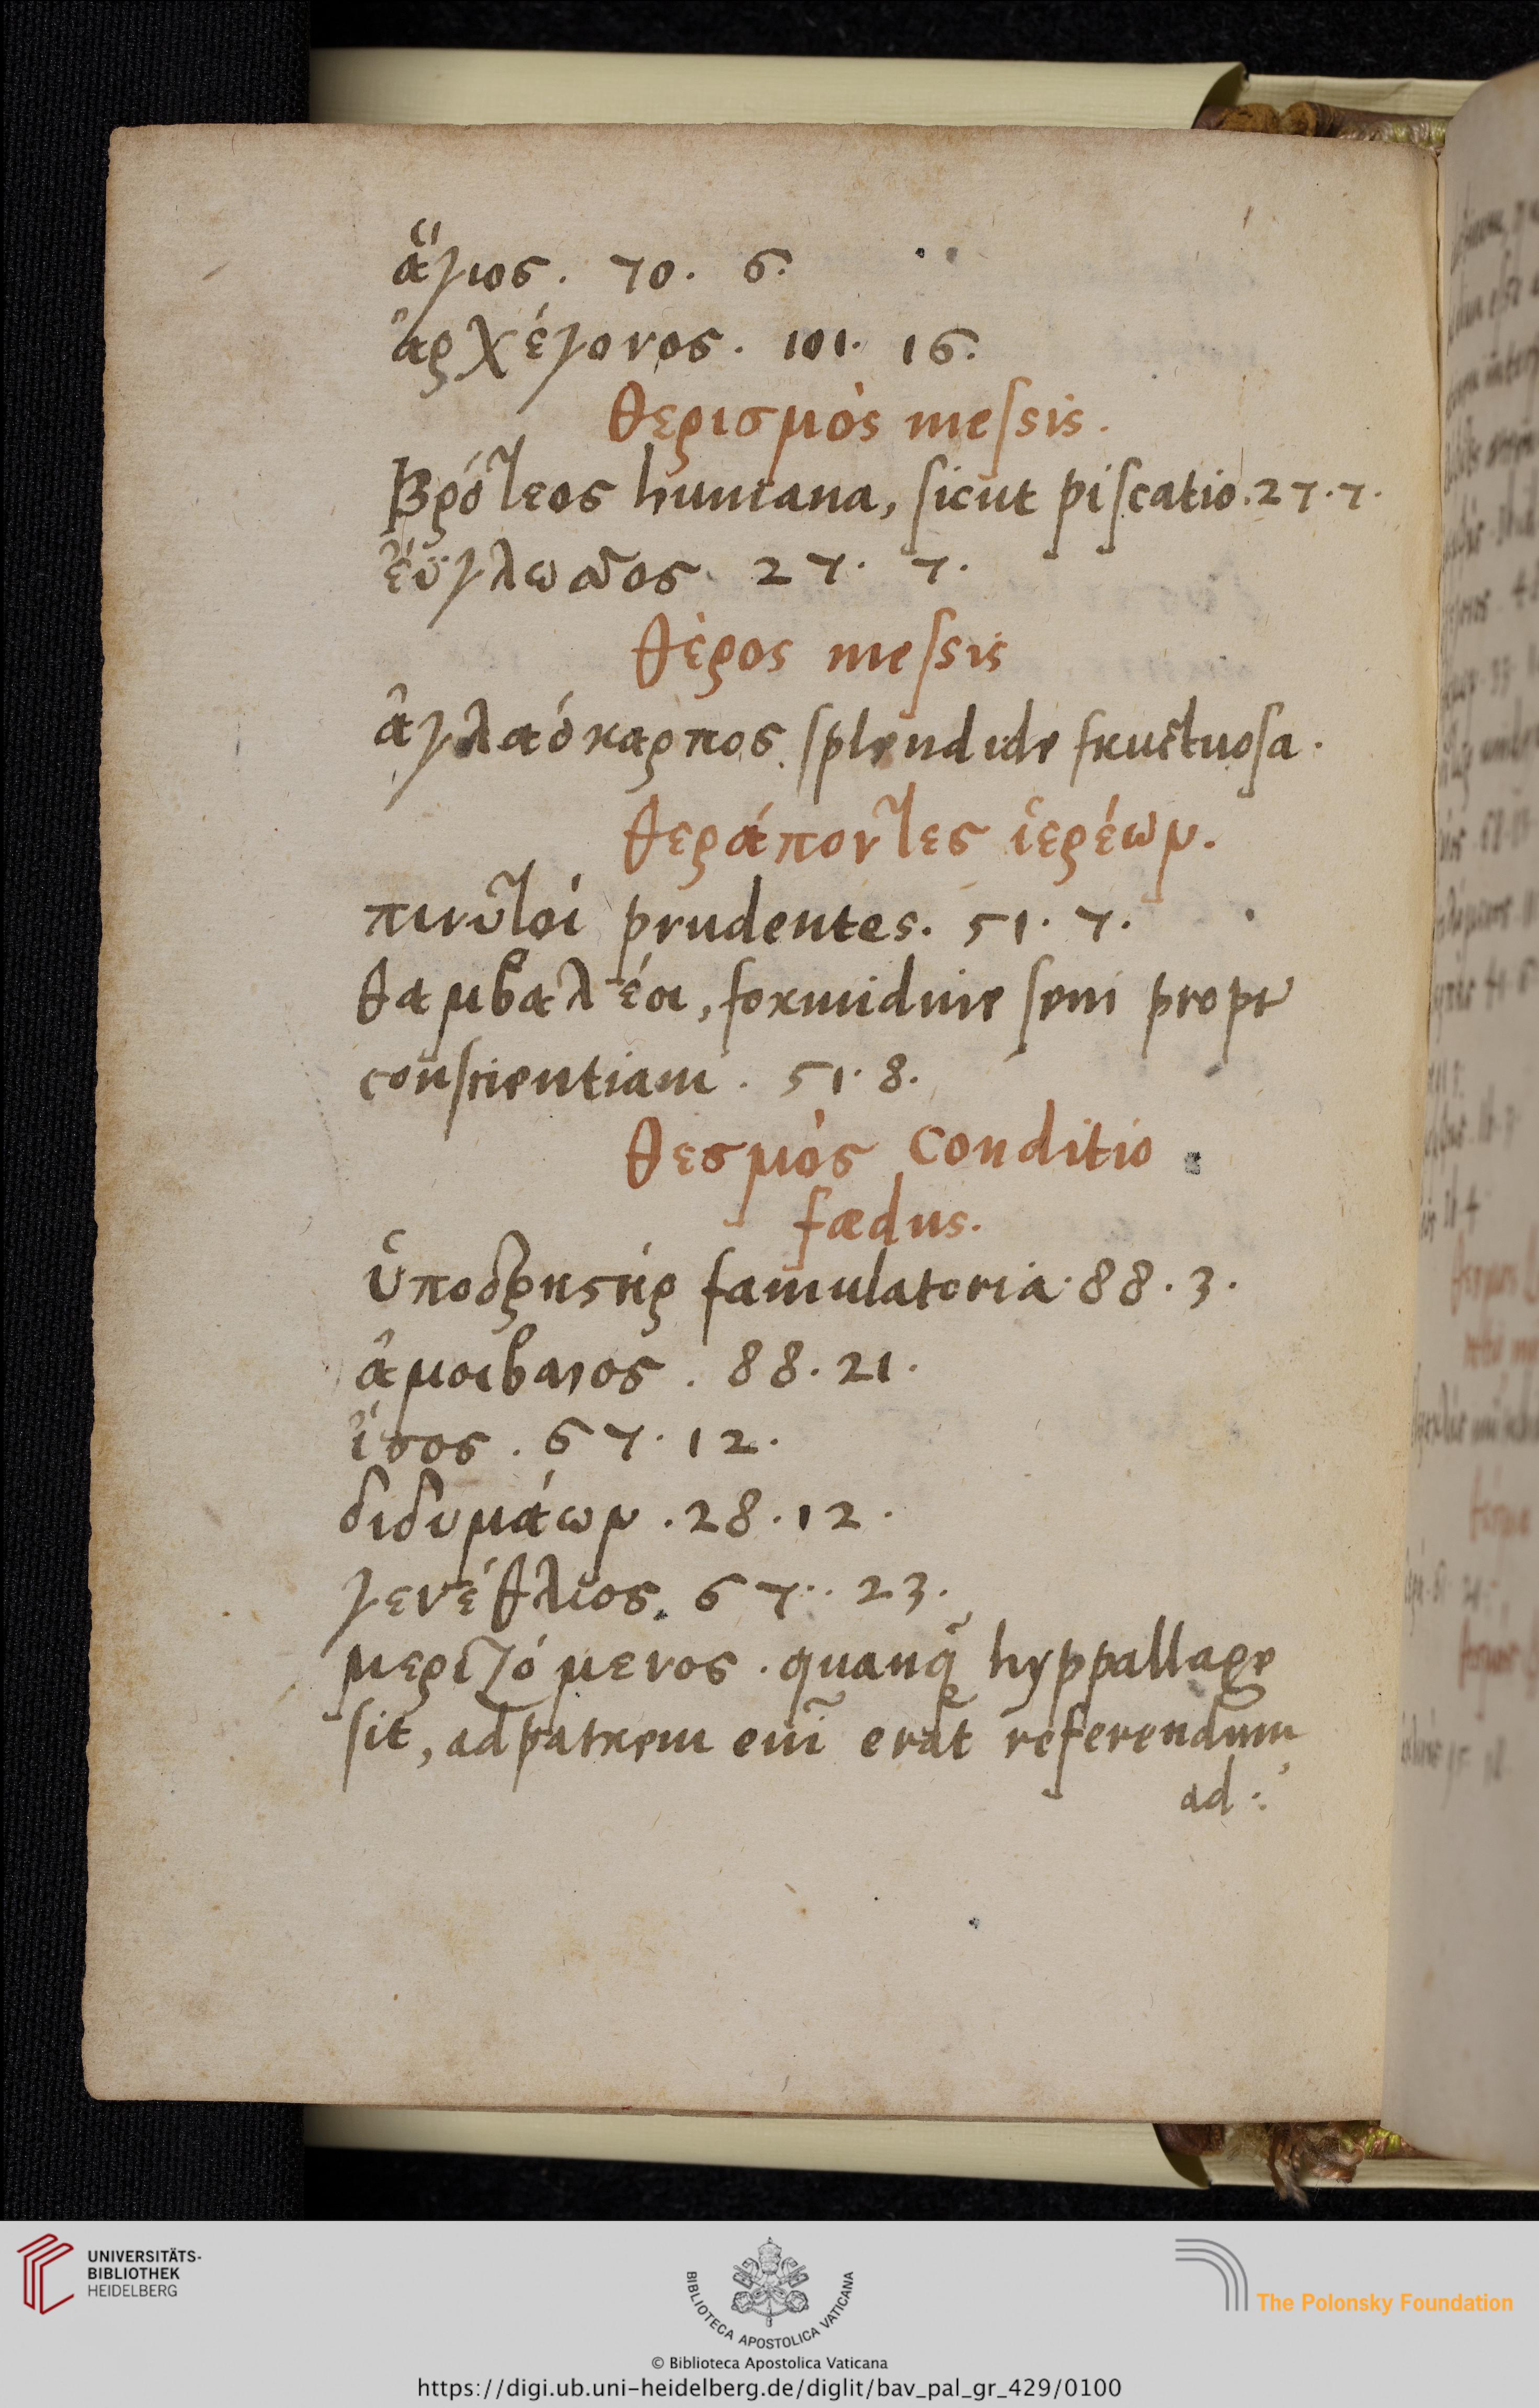 ἅγιος. 70. 6.
ἀρχέγονος. 101. 16.
θερισμὸς meſsis.
Βρότεος humana, ſicut piſcatio. 27. 7.
ἐύγλωσσος 27. 7.
θέρος meſsis
ἀγλαόκαρπος ſplendide fructuoſa.
θεράποντες ἱερέων.
πινυτοί prudentes. 51. 7.
θαμβαλέοι, formidine
conſcientiam. 51. 8.
θεσμὸς conditio
fædus.
ὑποδρηστὴρ famulatoria. 88. 3.
ἀμοιβαιος. 88. 21.
ἴσος. 67. 12.
διδυμάων. 28. 12.
γενέθλιος. 67. 23.
μεριζόμενος. quanq̃ hyppallage
ſit, ad patrem eni͂ erat referendum
ad
UNIVERSITÄTS-
BIBLIOTHEK
HEIDELBERG
BIBLIOTECA APOSTOLICA VATICANA
© Biblioteca Apostolica Vaticana
The Polonsky Foundation
https://digi.ub.uni-heidelberg.de/diglit/bav_pal_gr_429/0100